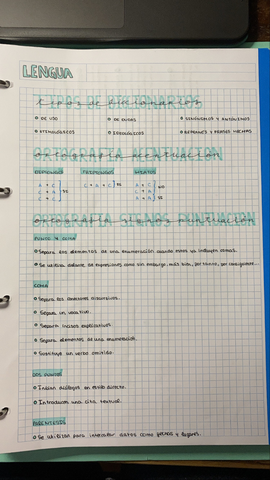 LENGUA
TIPOS DE DICCIONARIOS
DE USO DE DUDAS SINÓNIMOS Y ANTÓNIMOS
ETIMOLÓGICOS IDEOLÓGICOS REFRANES Y FRASES HECHAS
ORTOGRAFÍA ACENTUACIÓN
DIPTONGOS TRIPTONGOS HIATOS
A + C C + A + C SE A + C NO
C + A SE C + A
C + C A + A SE
ORTOGRAFÍA SIGNOS PUNTUACIÓN
PUNTO Y COMA
Separa los elementos de una enumeración cuando estos ya incluyen comas.
Se utiliza delante de expresiones como sin embargo, más bien, por tanto, por consiguiente...
COMA
Separa los conectores discursivos.
Separa un vocativo.
Separa incisos explicativos.
Separa elementos de una enumeración.
Sustituye un verbo omitido.
DOS PUNTOS
Inician diálogos en estilo directo.
Introducen una cita textual.
PARÉNTESIS
Se utilizan para intercalar datos como fechas y lugares.